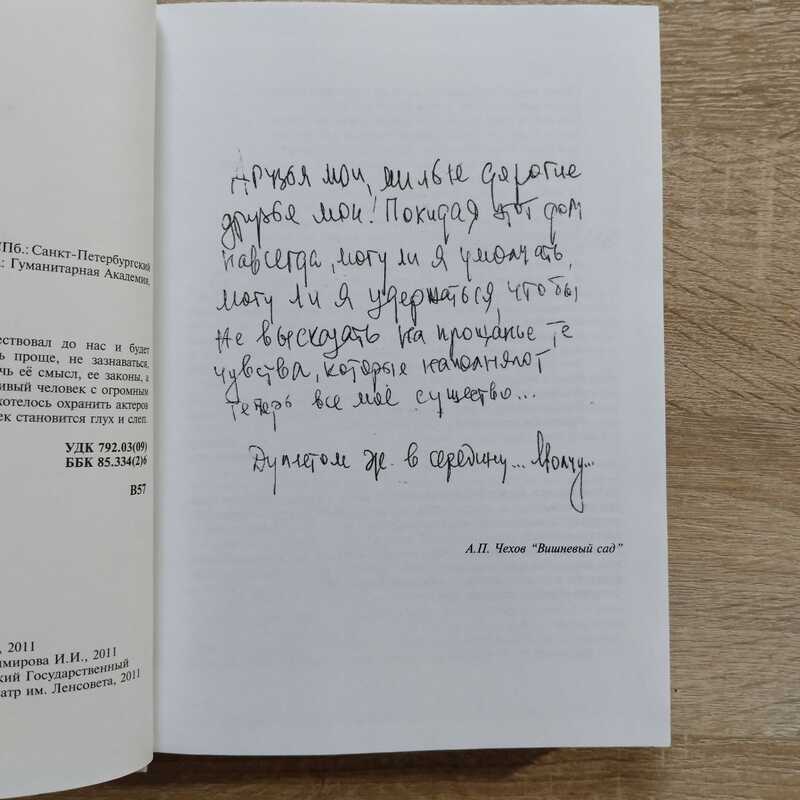 Пб.: Санкт-Петербургский
.: Гуманитарная Академия,
ествовал до нас и будет
ь проще, не зазнаваться,
чь её смысл, ее законы, а
ивый человек с огромным
хотелось охранить актеров
ек становится глух и слеп.
УДК 792.03(09)
ББК 85.334(2)6
В57
, 2011
имирова И.И., 2011
кий Государственный
атр им. Ленсовета, 2011
Друзья мои, милые дорогие
друзья мои! Покидая этот дом
навсегда, могу ли я умолчать,
могу ли я удержаться, чтобы
не высказать на прощанье те
чувства, которые наполняют
теперь все моё существо...
Дуплетом ж. в середину... Молчу...
А.П. Чехов “Вишневый сад”